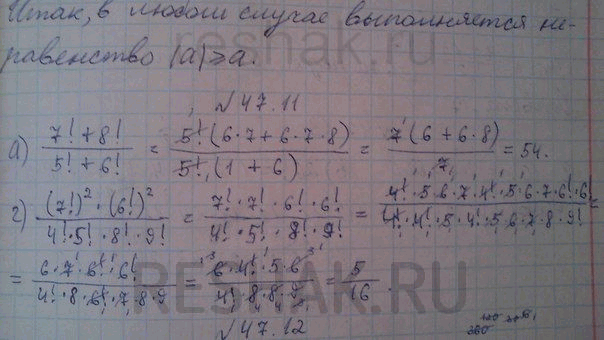 Итак, в любом случае выполняется не-
равенство |a|≥a.
№47.11
а) (7!+8!)/(5!+6!) = (5!(6·7+6·7·8))/(5!(1+6)) = (7(6+6·8))/7 = 54.
г) ((7!)²·(6!)²)/(4!·5!·8!·9!) = (7!·7!·6!·6!)/(4!·5!·8!·9!) = (4!·5·6·7·4!·5·6·7·6!·6!)/(4!·4!·5·4!·5·6·7·8·9!) =
= (6·7·6!·6!)/(4!·8·6!·7·8·9) = (6·4!·5·6)/(4!·8·8·9) = 5/16.
№47.12
RESHAK.RU
reshak.ru